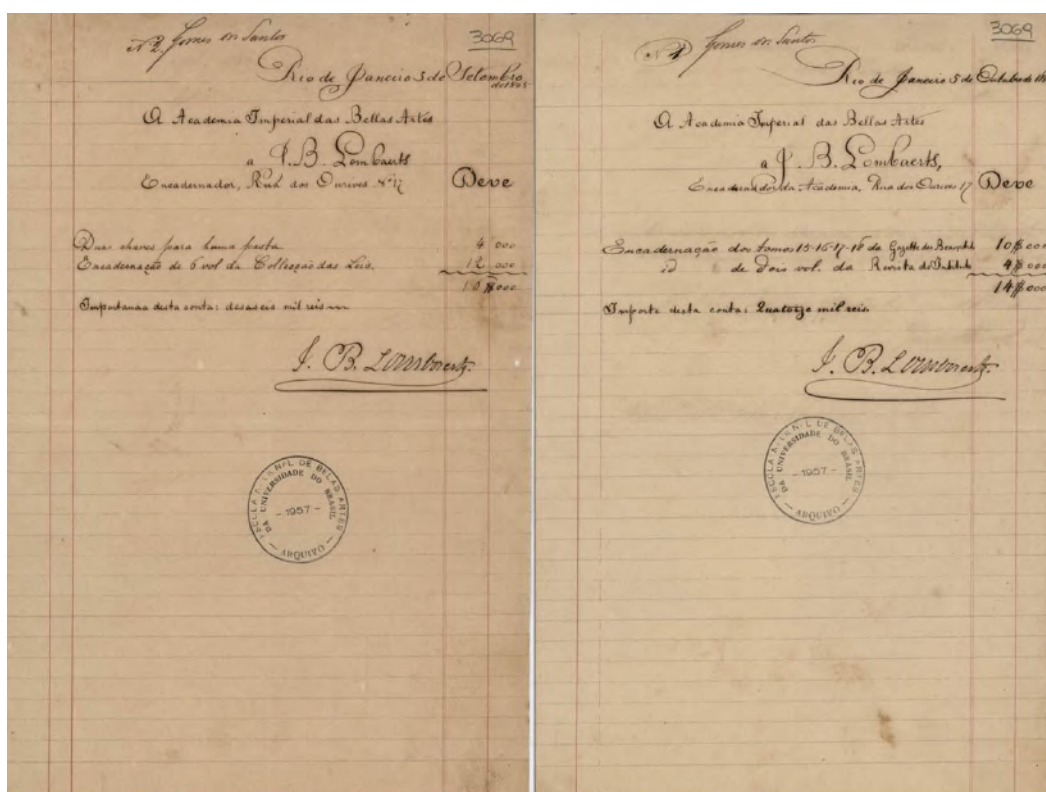 Nº 2 Gomes dos Santos
3069
Rio de Janeiro 5 de Setembro
de 1865
A Academia Imperial das Bellas Artes
a J. B. Lombaerts
Encadernador, Rua dos Ourives Nº 17 Deve
Duas chaves para huma pasta 4 000
Encadernação de 6 vol da Collecção das Leis. 12 000
Importancia desta conta: desaseis mil reis
J. B. Lombaerts
ESCOLA NL DE BELAS ARTES
DA UNIVERSIDADE DO BRASIL
- 1957 -
ARQUIVO
Nº 4 Gomes dos Santos
3069
Rio de Janeiro 5 de Outubro de
A Academia Imperial das Bellas Artes
a J. B. Lombaerts,
Encadernador da Academia, Rua dos Ourives 17 Deve
Encadernação dos tomos 15-16-17-18 da Gazette des Beaux 10$000
id de Dois vol. da Revista do Instituto 4$000
14$000
Importe desta conta: Quatorze mil reis
J. B. Lombaerts
ESCOLA NL DE BELAS ARTES
DA UNIVERSIDADE DO BRASIL
- 1957 -
ARQUIVO